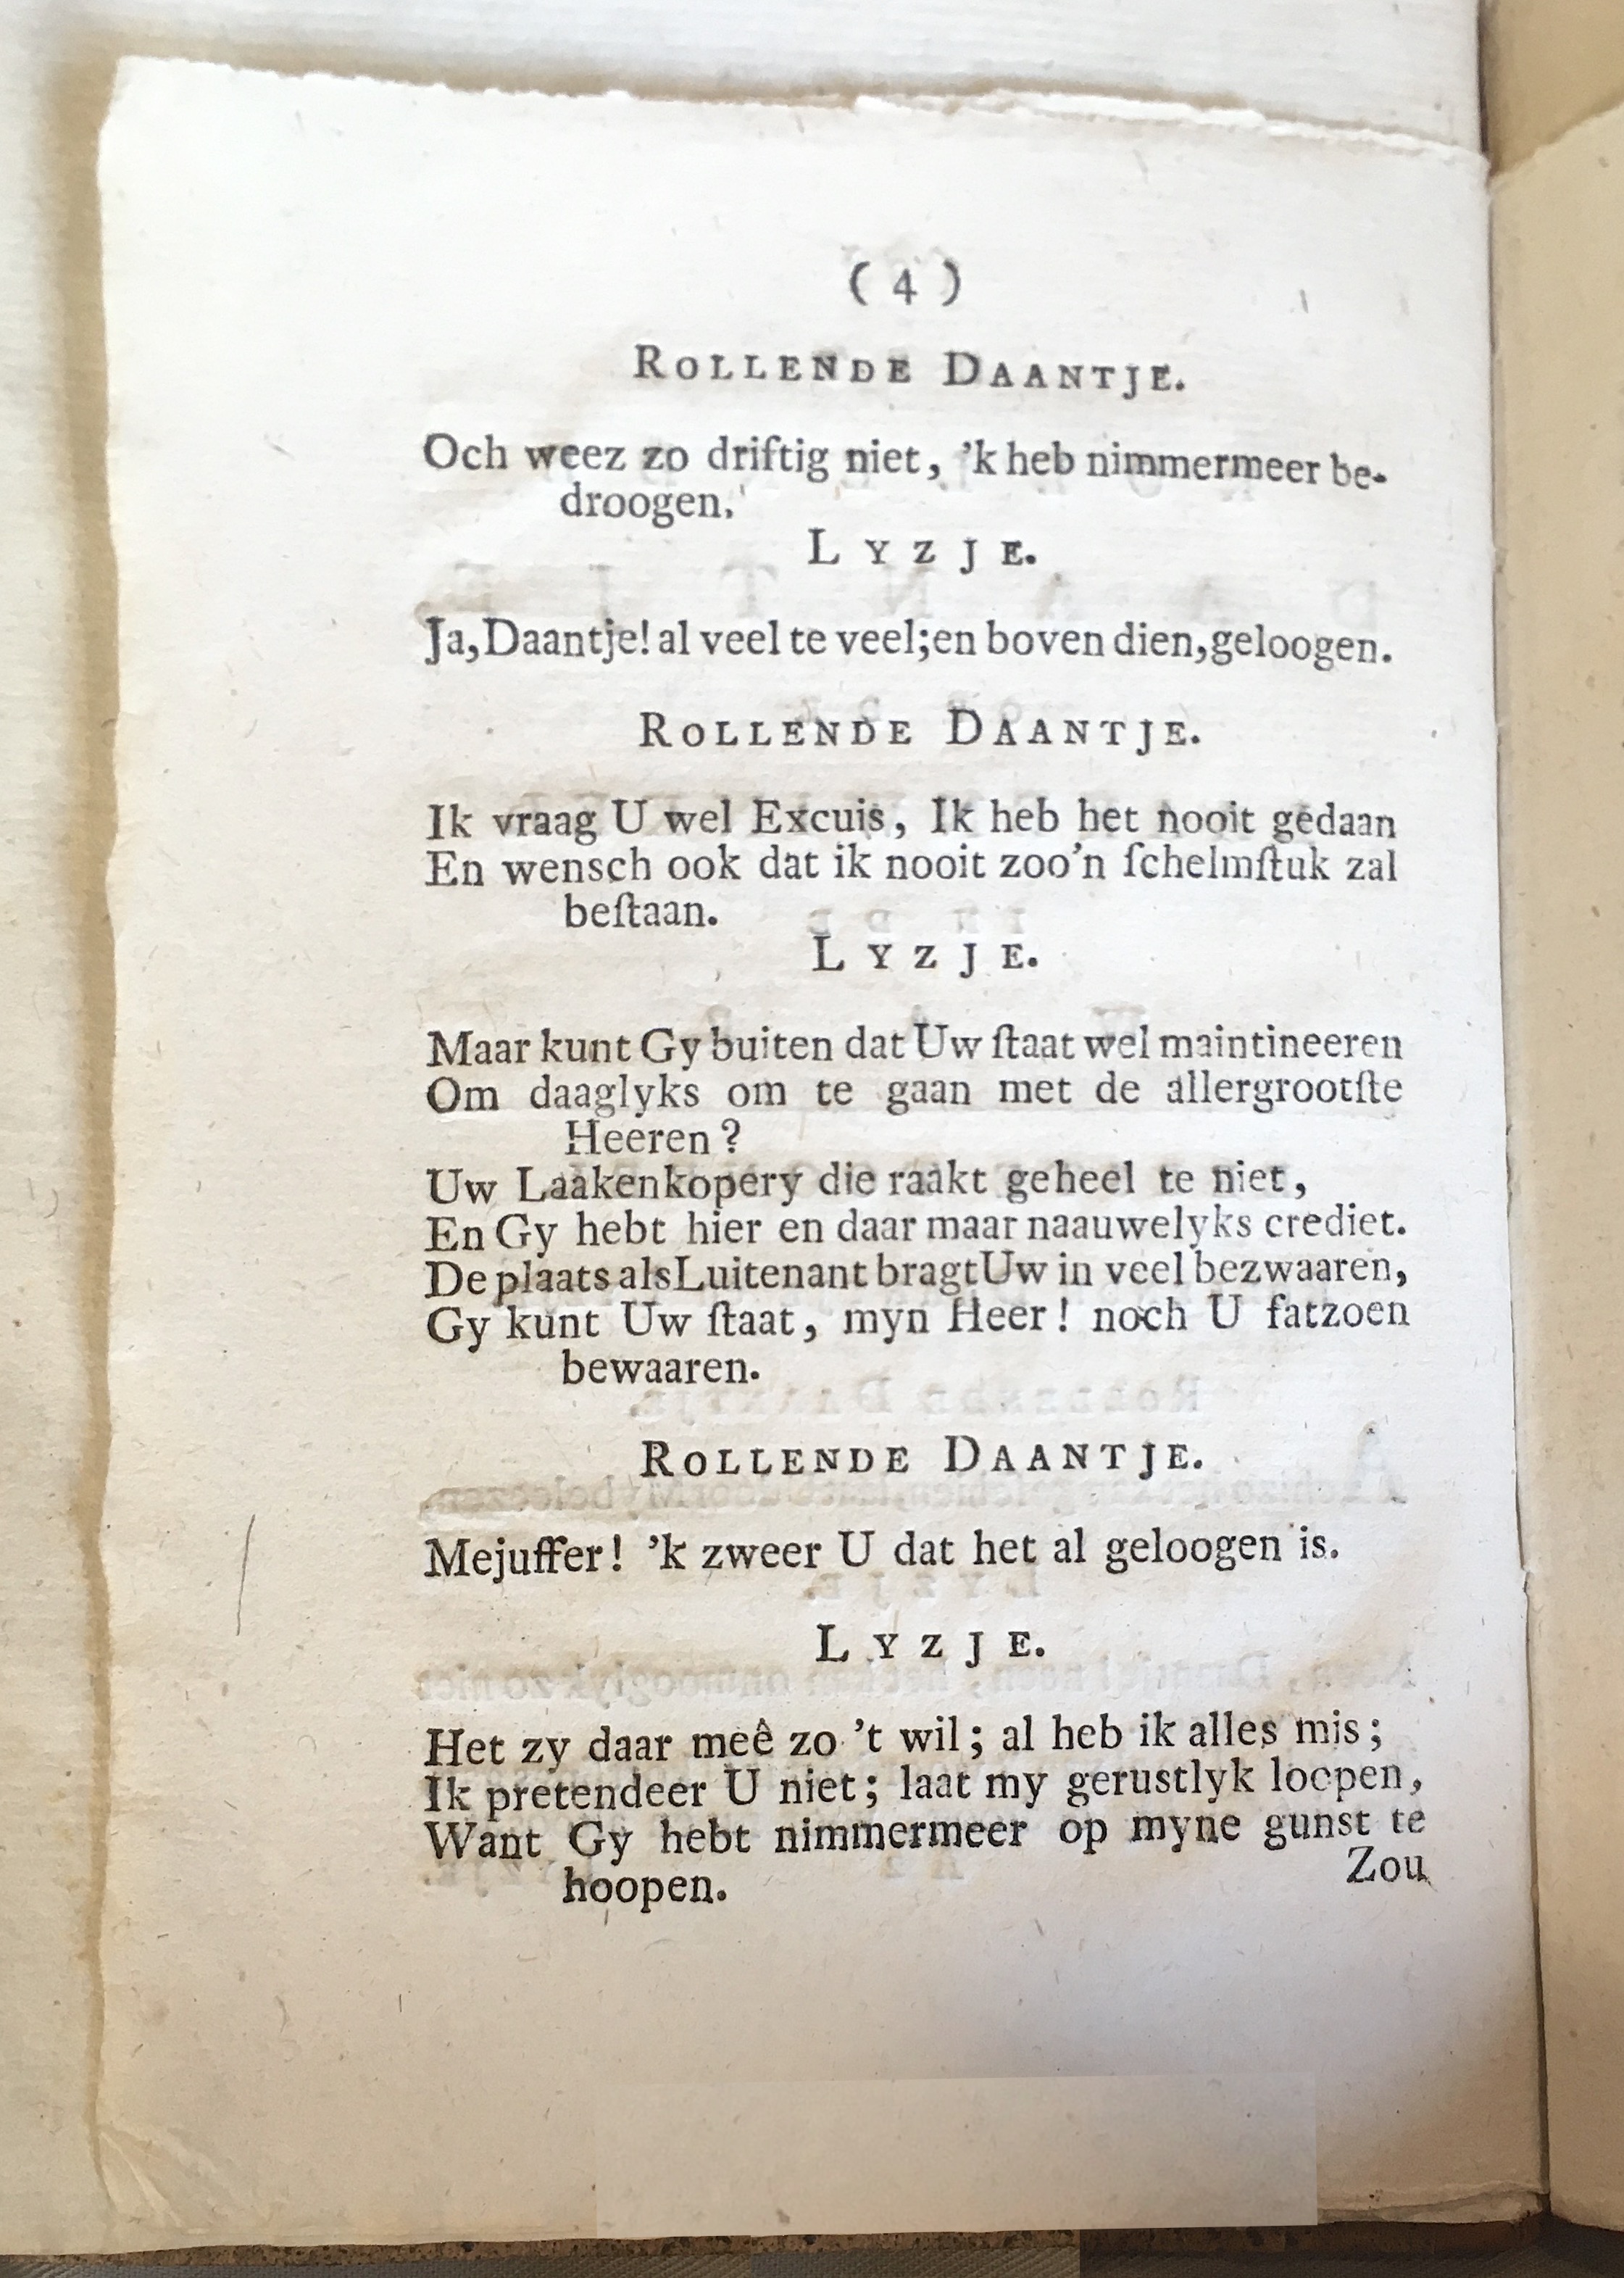 ( 4 )
ROLLENDE DAANTJE.
Och weez zo driftig niet, 'k heb nimmermeer be-
droogen.
LYZJE.
Ja, Daantje! al veel te veel; en boven dien, geloogen.
ROLLENDE DAANTJE.
Ik vraag U wel Excuis, Ik heb het nooit gedaan
En wensch ook dat ik nooit zoo'n ſchelmſtuk zal
beſtaan.
LYZJE.
Maar kunt Gy buiten dat Uw ſtaat wel maintineeren
Om daaglyks om te gaan met de allergrootſte
Heeren?
Uw Laakenkopery die raakt geheel te niet,
En Gy hebt hier en daar maar naauwelyks crediet.
De plaats als Luitenant bragt Uw in veel bezwaaren,
Gy kunt Uw ſtaat, myn Heer! noch U fatzoen
bewaaren.
ROLLENDE DAANTJE.
Mejuffer! 'k zweer U dat het al geloogen is.
LYZJE.
Het zy daar meê zo 't wil; al heb ik alles mis;
Ik pretendeer U niet; laat my gerustlyk loopen,
Want Gy hebt nimmermeer op myne gunst te
hoopen.
Zou